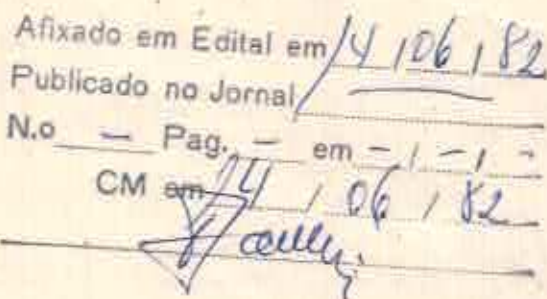 Afixado em Edital em 14 / 06 / 82
Publicado no Jornal
N.o — Pag. — em - / - / -
CM em 14 / 06 / 82